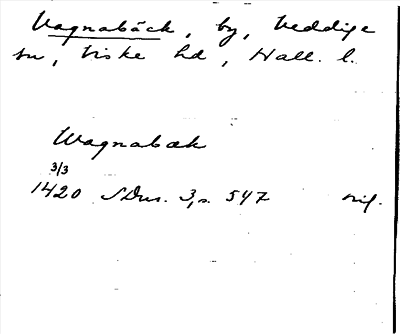 Vagnabäck, by, Veddige
sn, Viske hd, Hall. l.
Wagnabæk
3/3
1420 SDns. 3, s. 547 orig.